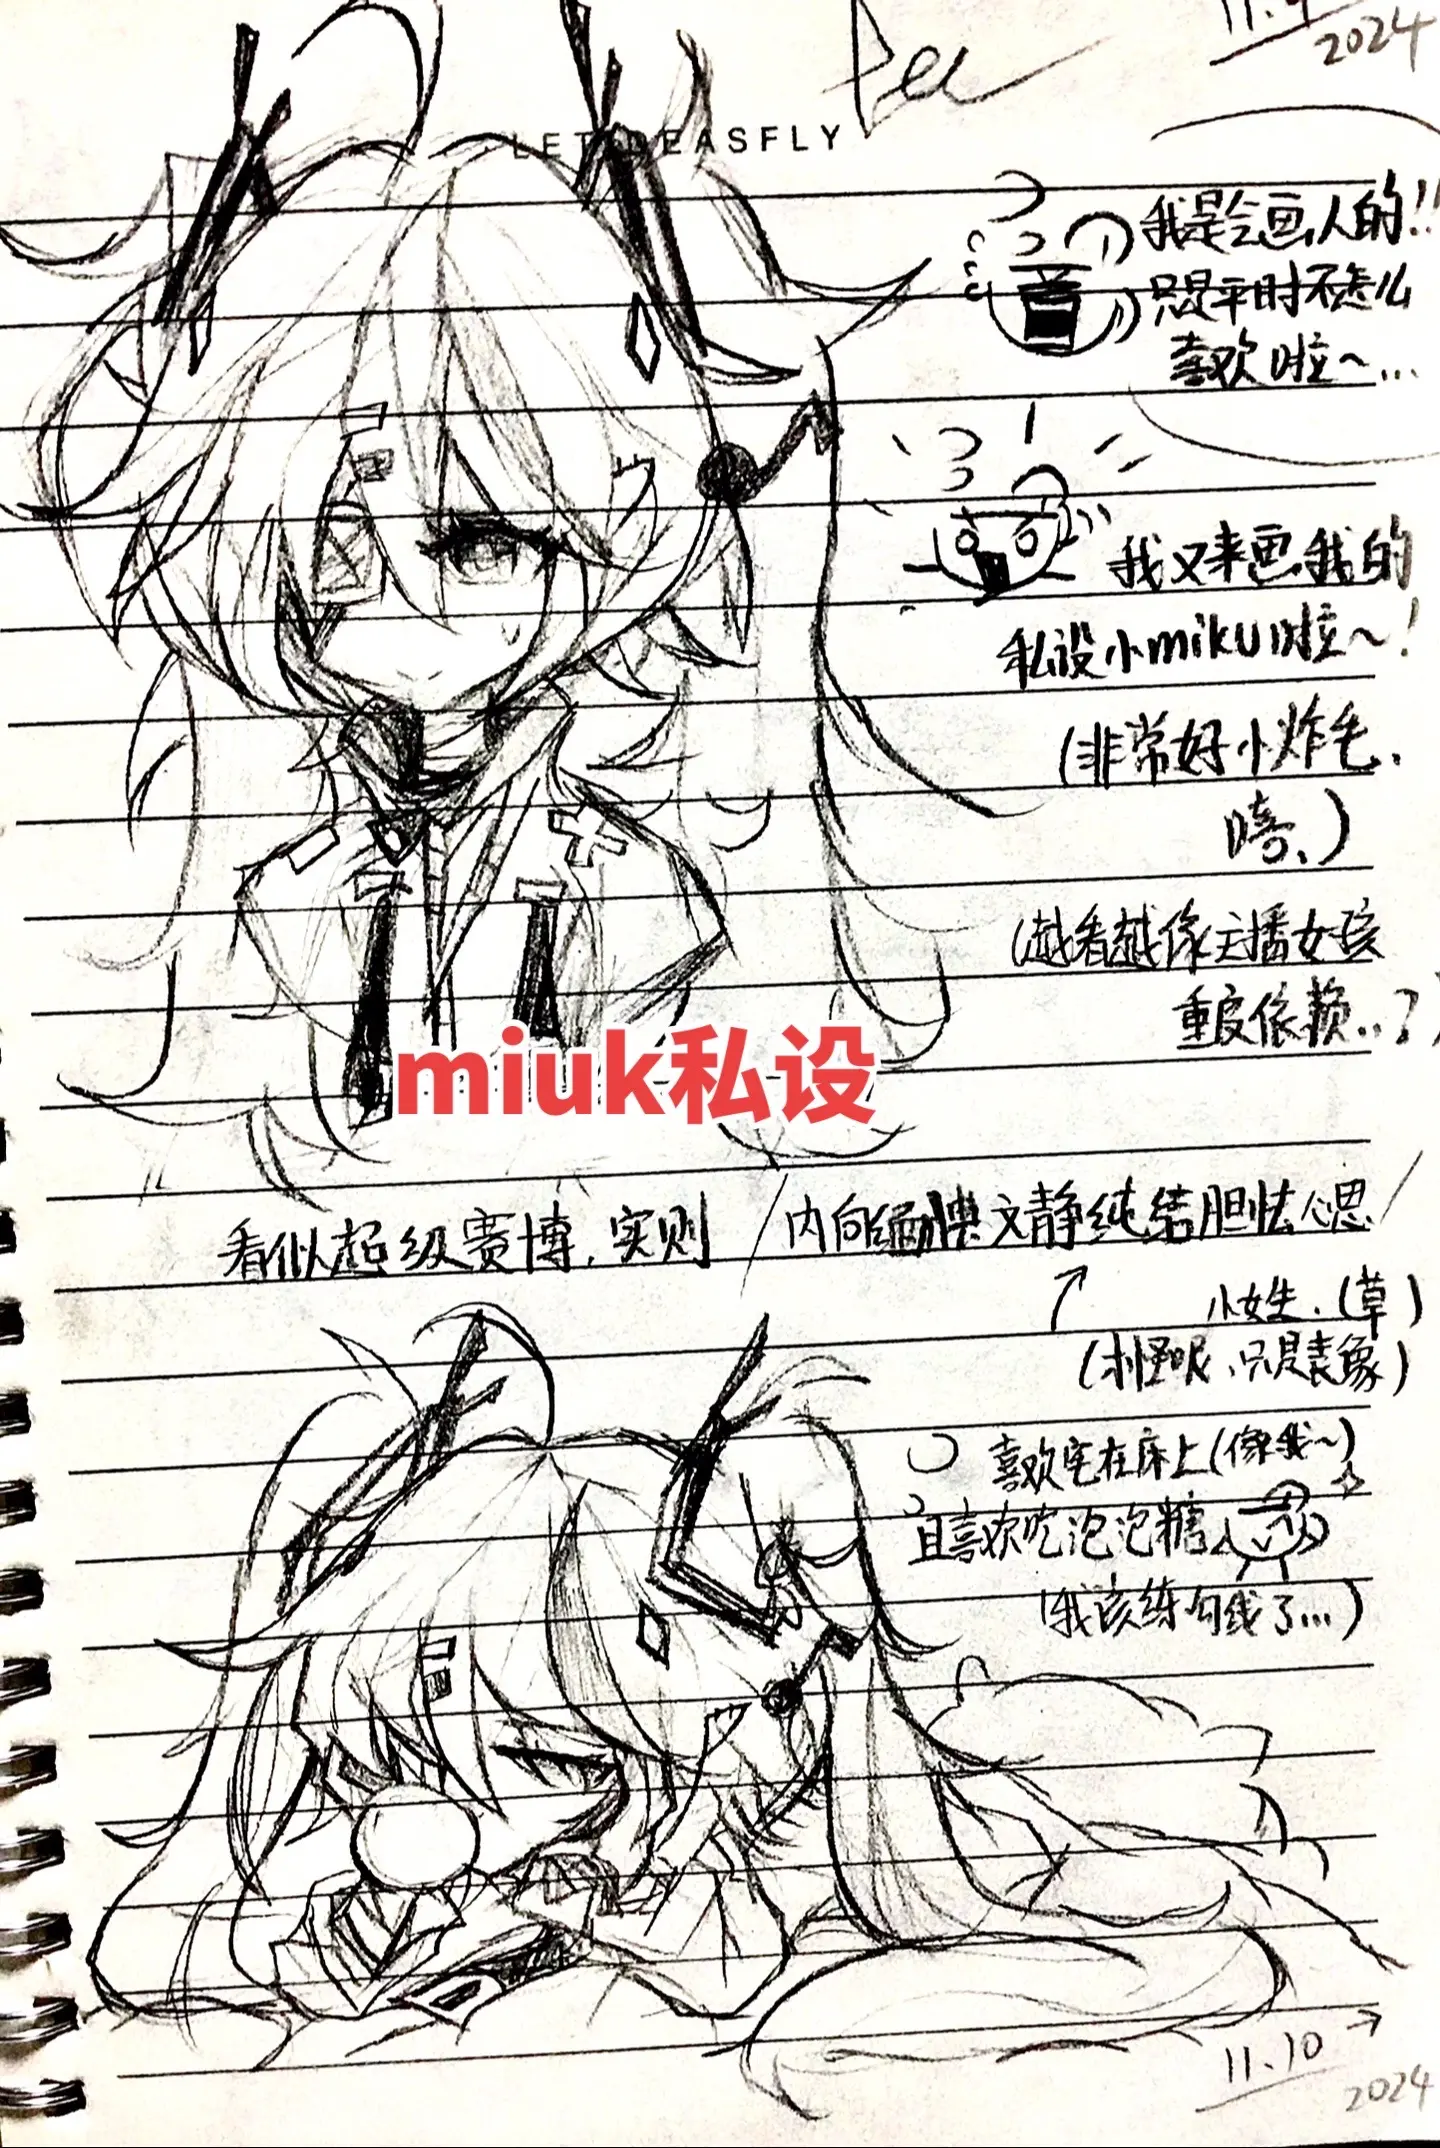 11.9
2024
LETIDEASFLY
我是会画人的!!
只是平时不怎么
喜欢啦~...
我又来画我的
私设小miku啦~!
(非常好小炸毛.
嘻、)
(越看越像主播女孩
重度依赖..?)
miuk私设
看似超级赛博,实则/内向缅腆文静纯结胆怯心思/
小女生.(草)
(刘怪呆、只是表象)
喜欢宅在床上(像我~)
且喜欢吃泡泡糖
(我该练勾线了...)
11.10
2024